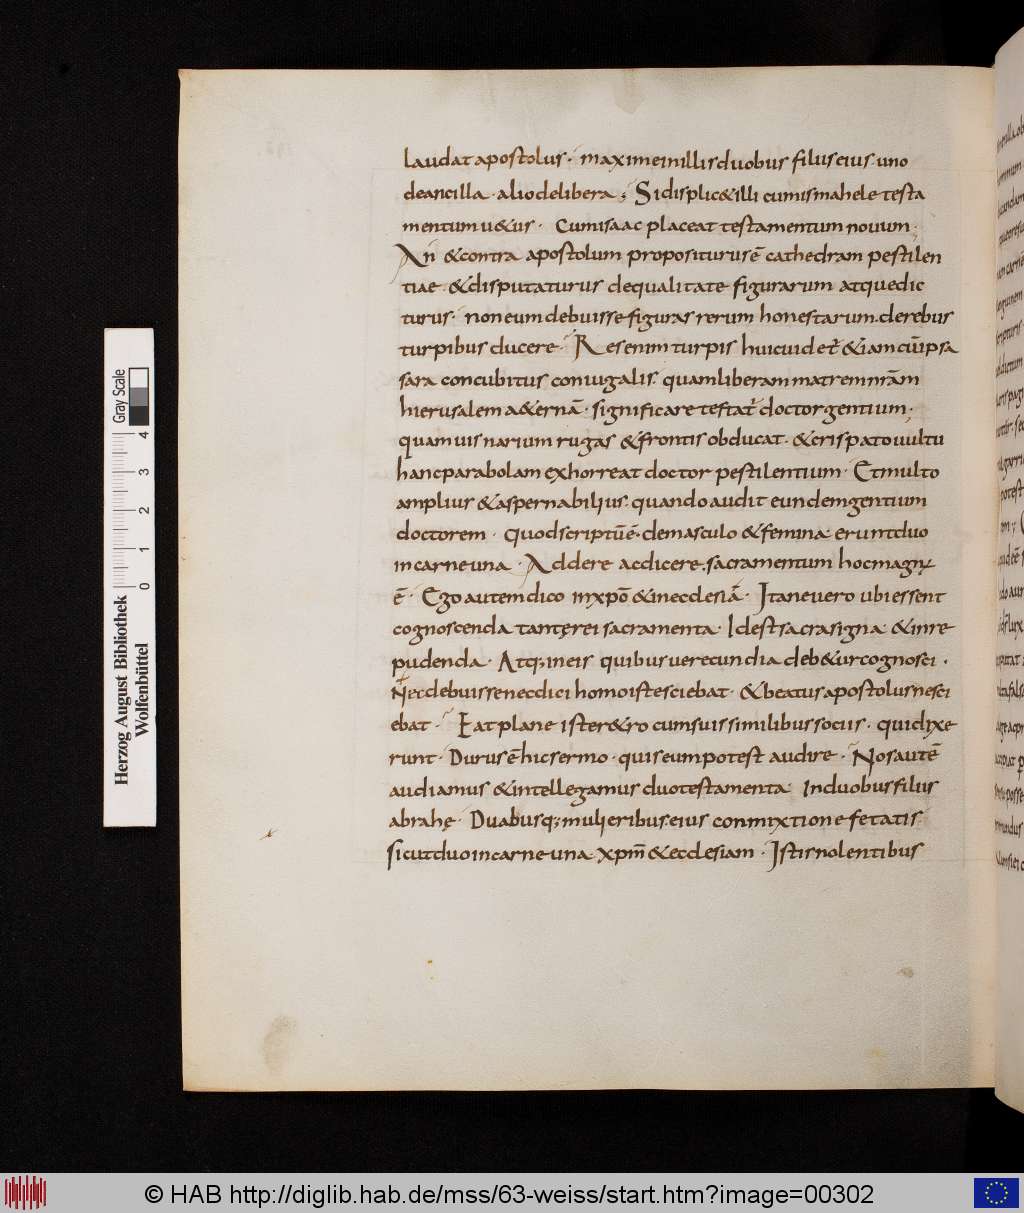 laudat apostolus · maxime in illis duobus filiis eius uno
de ancilla · alio de libera ; Si displic& illi cum ismahele testa
mentum u&us · cum isaac placeat testamentum nouum ;
An & contra apostolum propositurus ē cathedram pestilen
tiae · & disputaturus de qualitate figurarum atque dic
turus · non eum debuisse figuras rerum honestarum de rebus
turpibus ducere · Res enim turpis huic uidet̄ &iam cū ipsa
sara concubitus coniugalis · quam liberam matrem nr̄am
hierusalem a&ernā · significare testat̄ doctor gentium ;
quamuis narium rugas & frontis obducat · & crispato uultu
hanc parabolam exhorreat doctor pestilentium · Et multo
amplius & aspernabilius · quando audit eundem gentium
doctorem · quod scriptū ē · de masculo & femina erunt duo
in carne una · Addere ac dicere · sacramentum hoc magnū
ē · Ego autem dico in xp̄o & in ecclesiā · Itane uero ubi essent
cognoscenda tantę rei sacramenta · Id est sacra signa & inre
pudenda · Atq; in eis quibus uerecundia deb&ur cognosci ·
Nec debuisse nec dici homo iste sciebat · & beatus apostolus nesci
ebat · Eat plane iste r&ro cum suis similibus sociis · qui dixe
runt · Durus ē hic sermo · quis eum potest audire · Nos autē
audiamus & intellegamus duo testamenta · In duobus filiis
abrahę · Duabusq; mulieribus eius conmixtione fetatis
sicut duo in carne una xp̄m̄ & ecclesiam · Istis nolentibus
Gray Scale
0 1 2 3 4
Herzog August Bibliothek
Wolfenbüttel
© HAB http://diglib.hab.de/mss/63-weiss/start.htm?image=00302